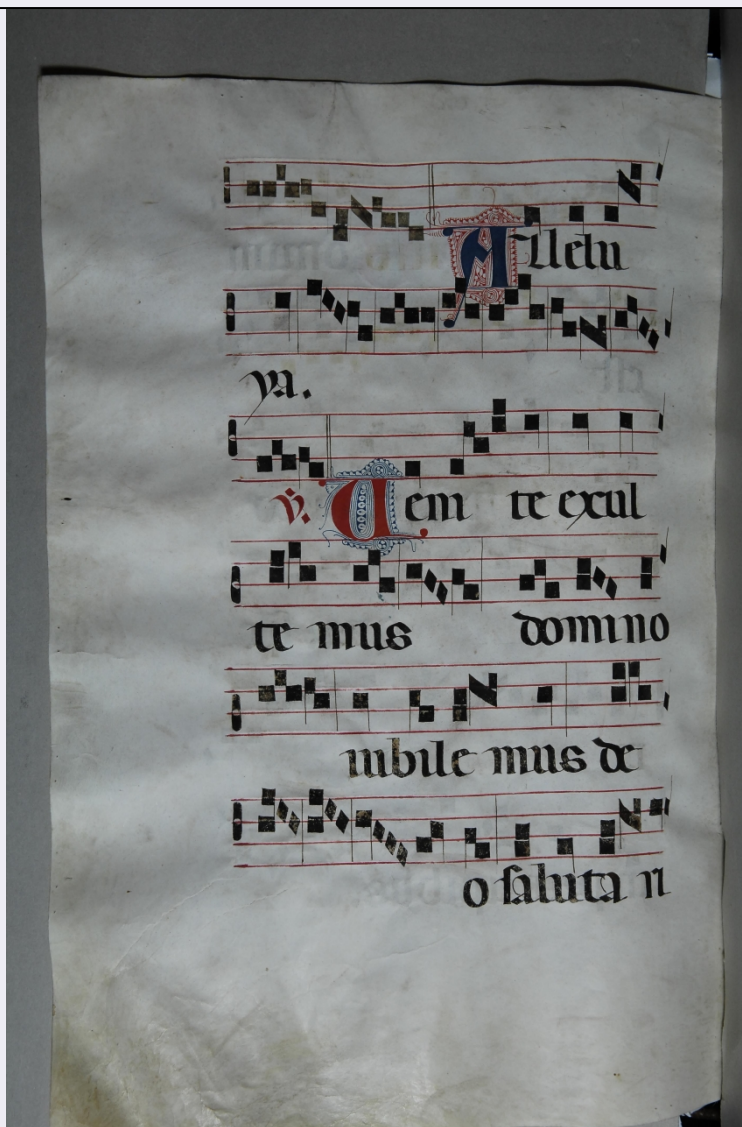 Allelu
ya.
℣. Uem te exul
te mus domino
iubile mus de
o saluta ri